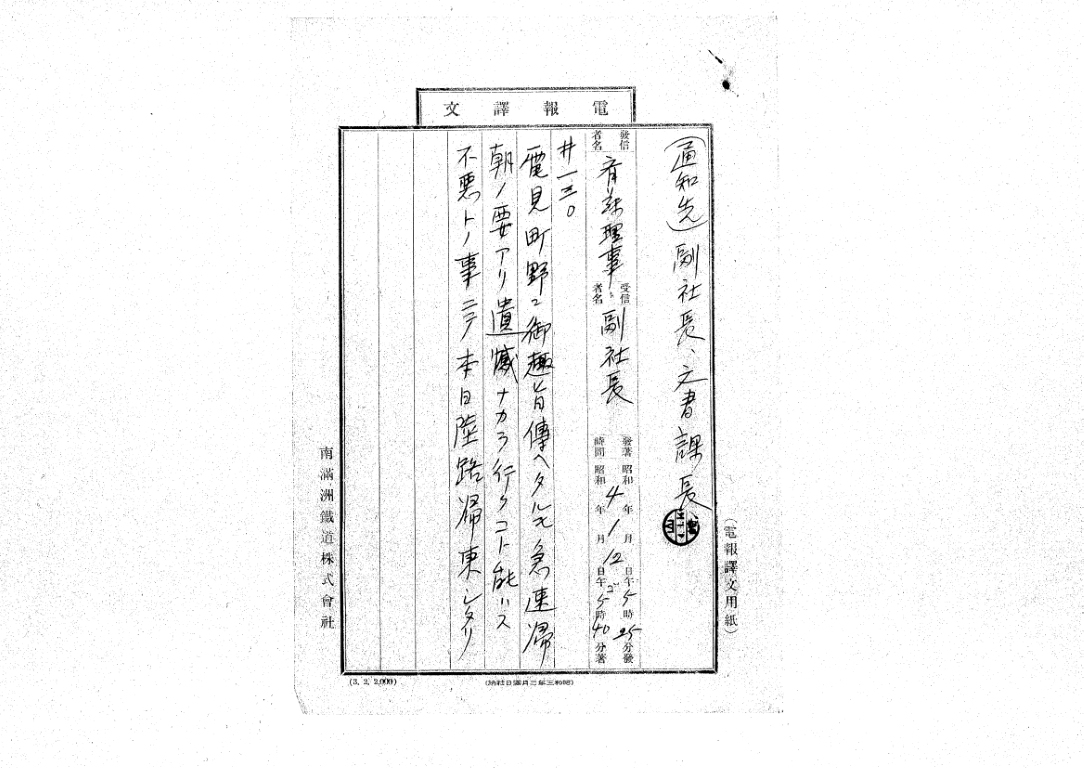 電報譯文
(通知先) 副社長、文書課長
發信者名 斉藤理事
受信者名 副社長
發著時間 昭和4年1月12日午5時25分發
昭和 年 月 日午5時40分著
井一三〇
電見町野ニ御趣旨傳ヘタルモ急速歸
朝ノ要アリ遺憾ナカラ行クコト能ハス
不悪トノ事ニテ本日陸路歸東シタリ
(電報譯文用紙)
南滿洲鐵道株式會社
(3. 2. 2,000)